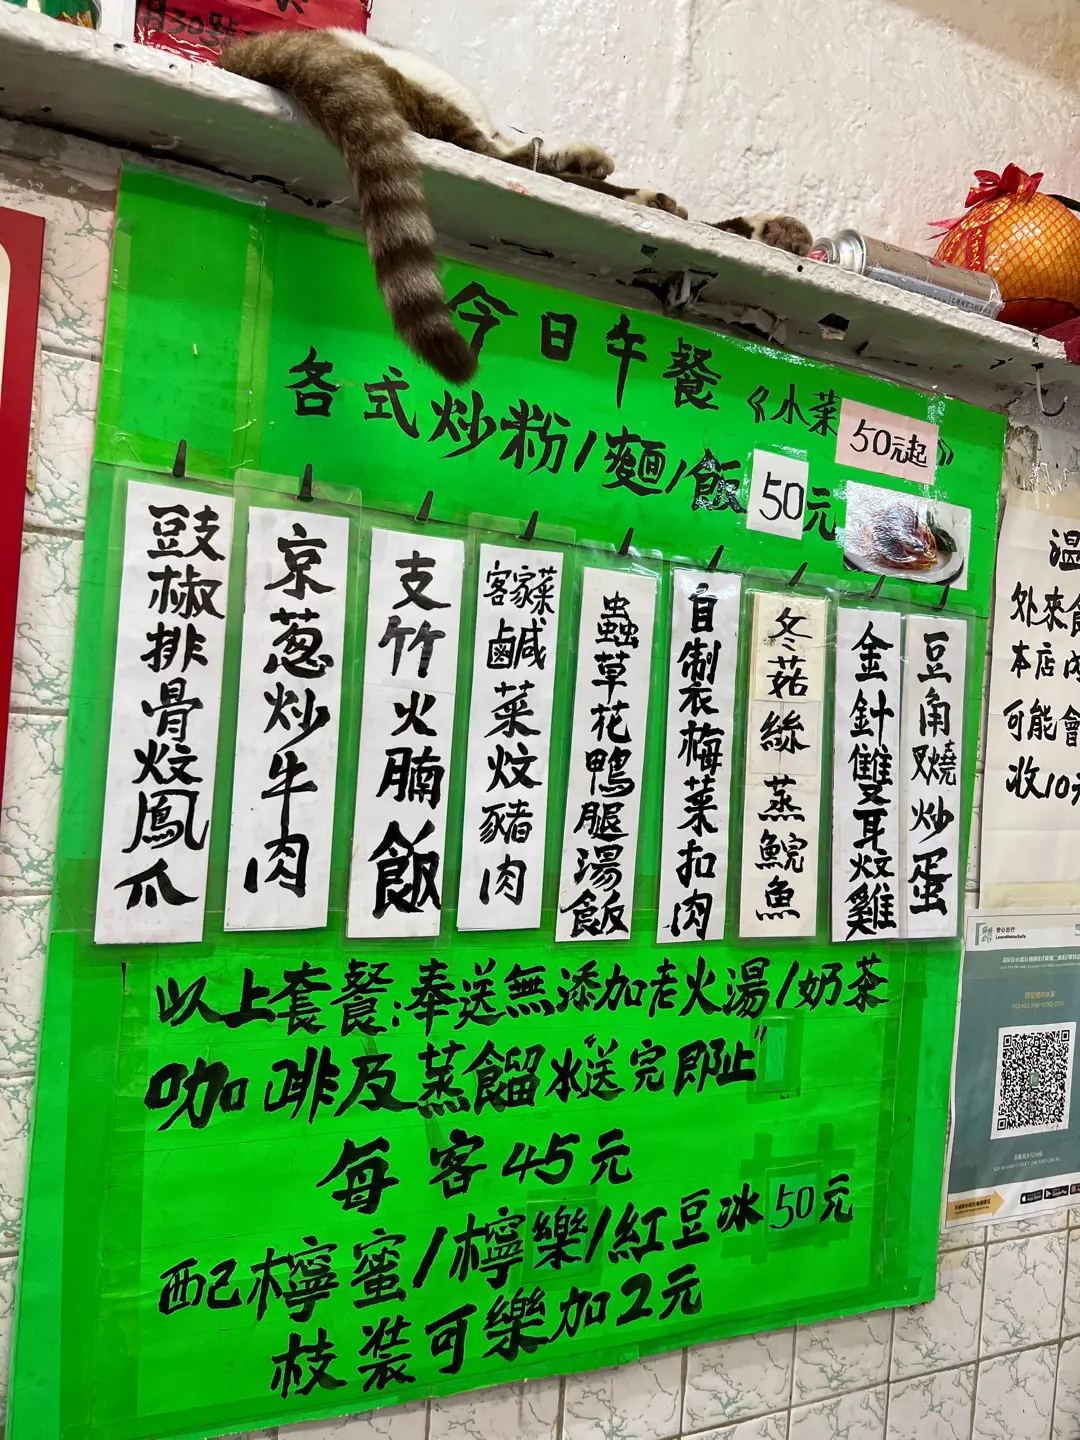 月30號
今日午餐《小菜50元起》
各式炒粉/麵/飯50元
豉椒排骨炆鳳爪
京葱炒牛肉
支竹火腩飯
客家菜鹹菜炆豬肉
蟲草花鴨腿湯飯
自製梅菜扣肉
冬菇絲蒸鯇魚
金針雙耳炆雞
豆角叉燒炒蛋
以上套餐:奉送無添加老火湯/奶茶
咖啡及蒸餾水"送完即止"
每客45元
配檸蜜/檸樂/紅豆冰50元
枝裝可樂加2元
溫
外來食
本店內
可能會
收10元
安心出行
LeaveHomeSafe